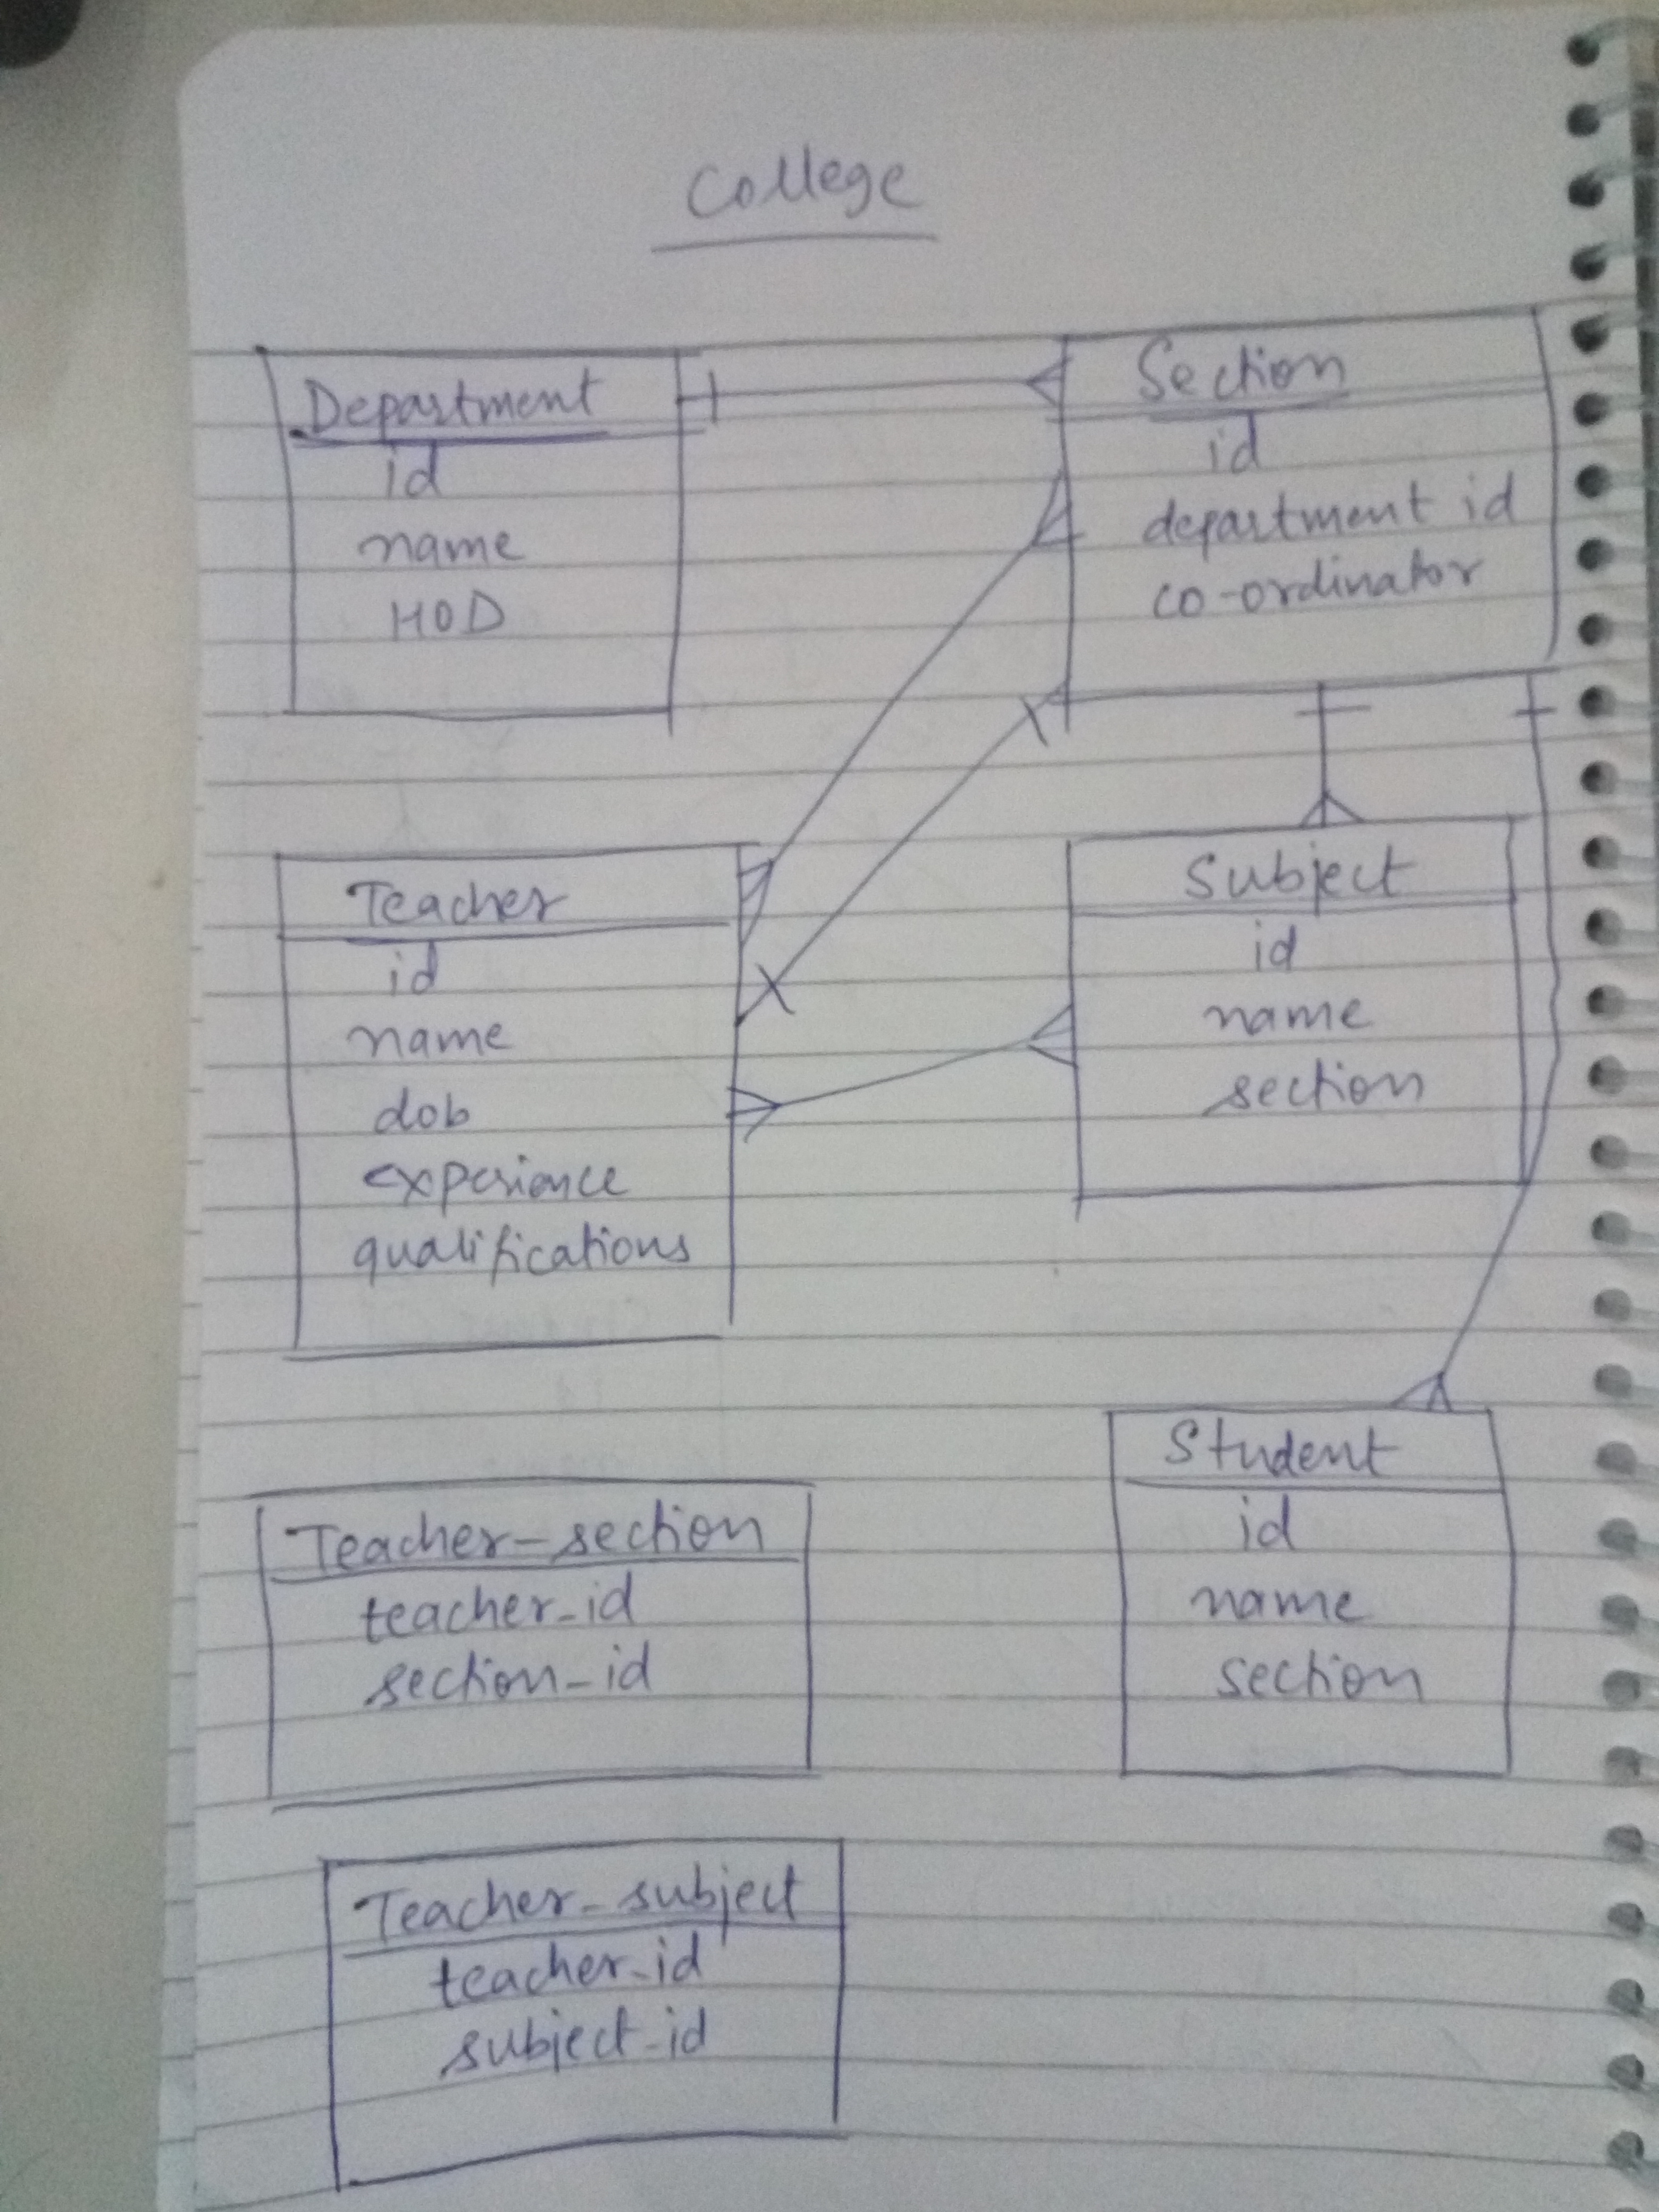 College
Department
id
name
HOD
Section
id
department id
co-ordinator
Teacher
id
name
dob
experience
qualifications
Subject
id
name
section
Teacher-section
teacher-id
section-id
Student
id
name
section
Teacher-subject
teacher-id
subject-id